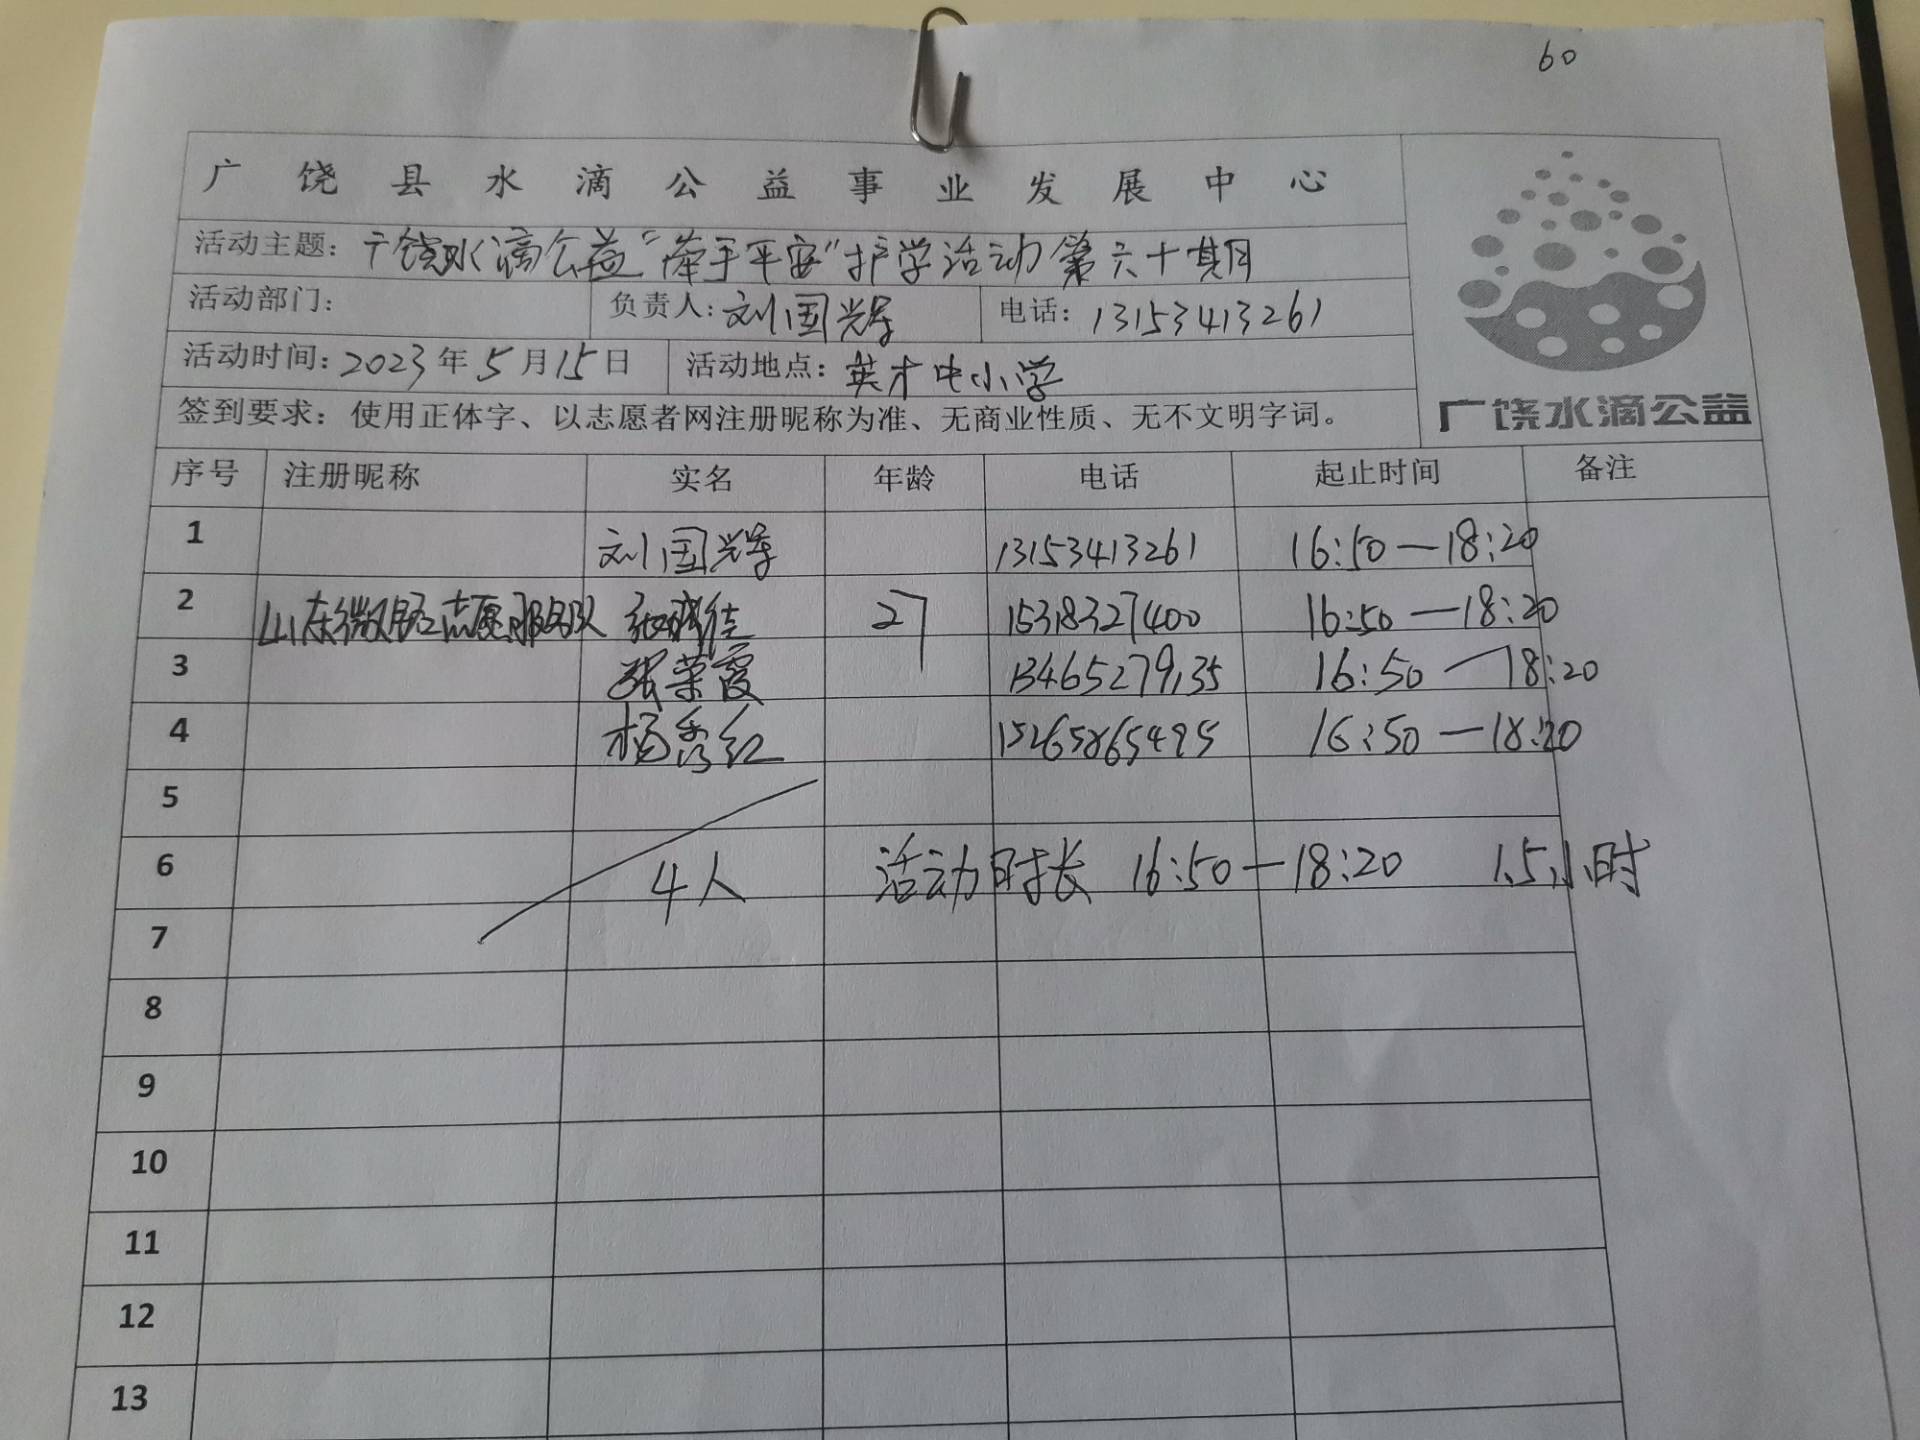 60
广饶县水滴公益事业发展中心
活动主题：广饶水滴公益“牵手平安”护学活动第六十期
活动部门： 负责人：刘国辉 电话：13153413261
活动时间：2023年5月15日 活动地点：英才中小学
签到要求：使用正体字、以志愿者网注册昵称为准、无商业性质、无不文明字词。
广饶水滴公益
序号 注册昵称 实名 年龄 电话 起止时间 备注
1 刘国辉 13153413261 16:50—18:20
2 山东微 志愿服务队 27 15318327400 16:50—18:20
3 张荣霞 13465279135 16:50—18:20
4 杨秀红 15265865495 16:50—18:20
5
6 4人 活动时长 16:50—18:20 1.5小时
7
8
9
10
11
12
13